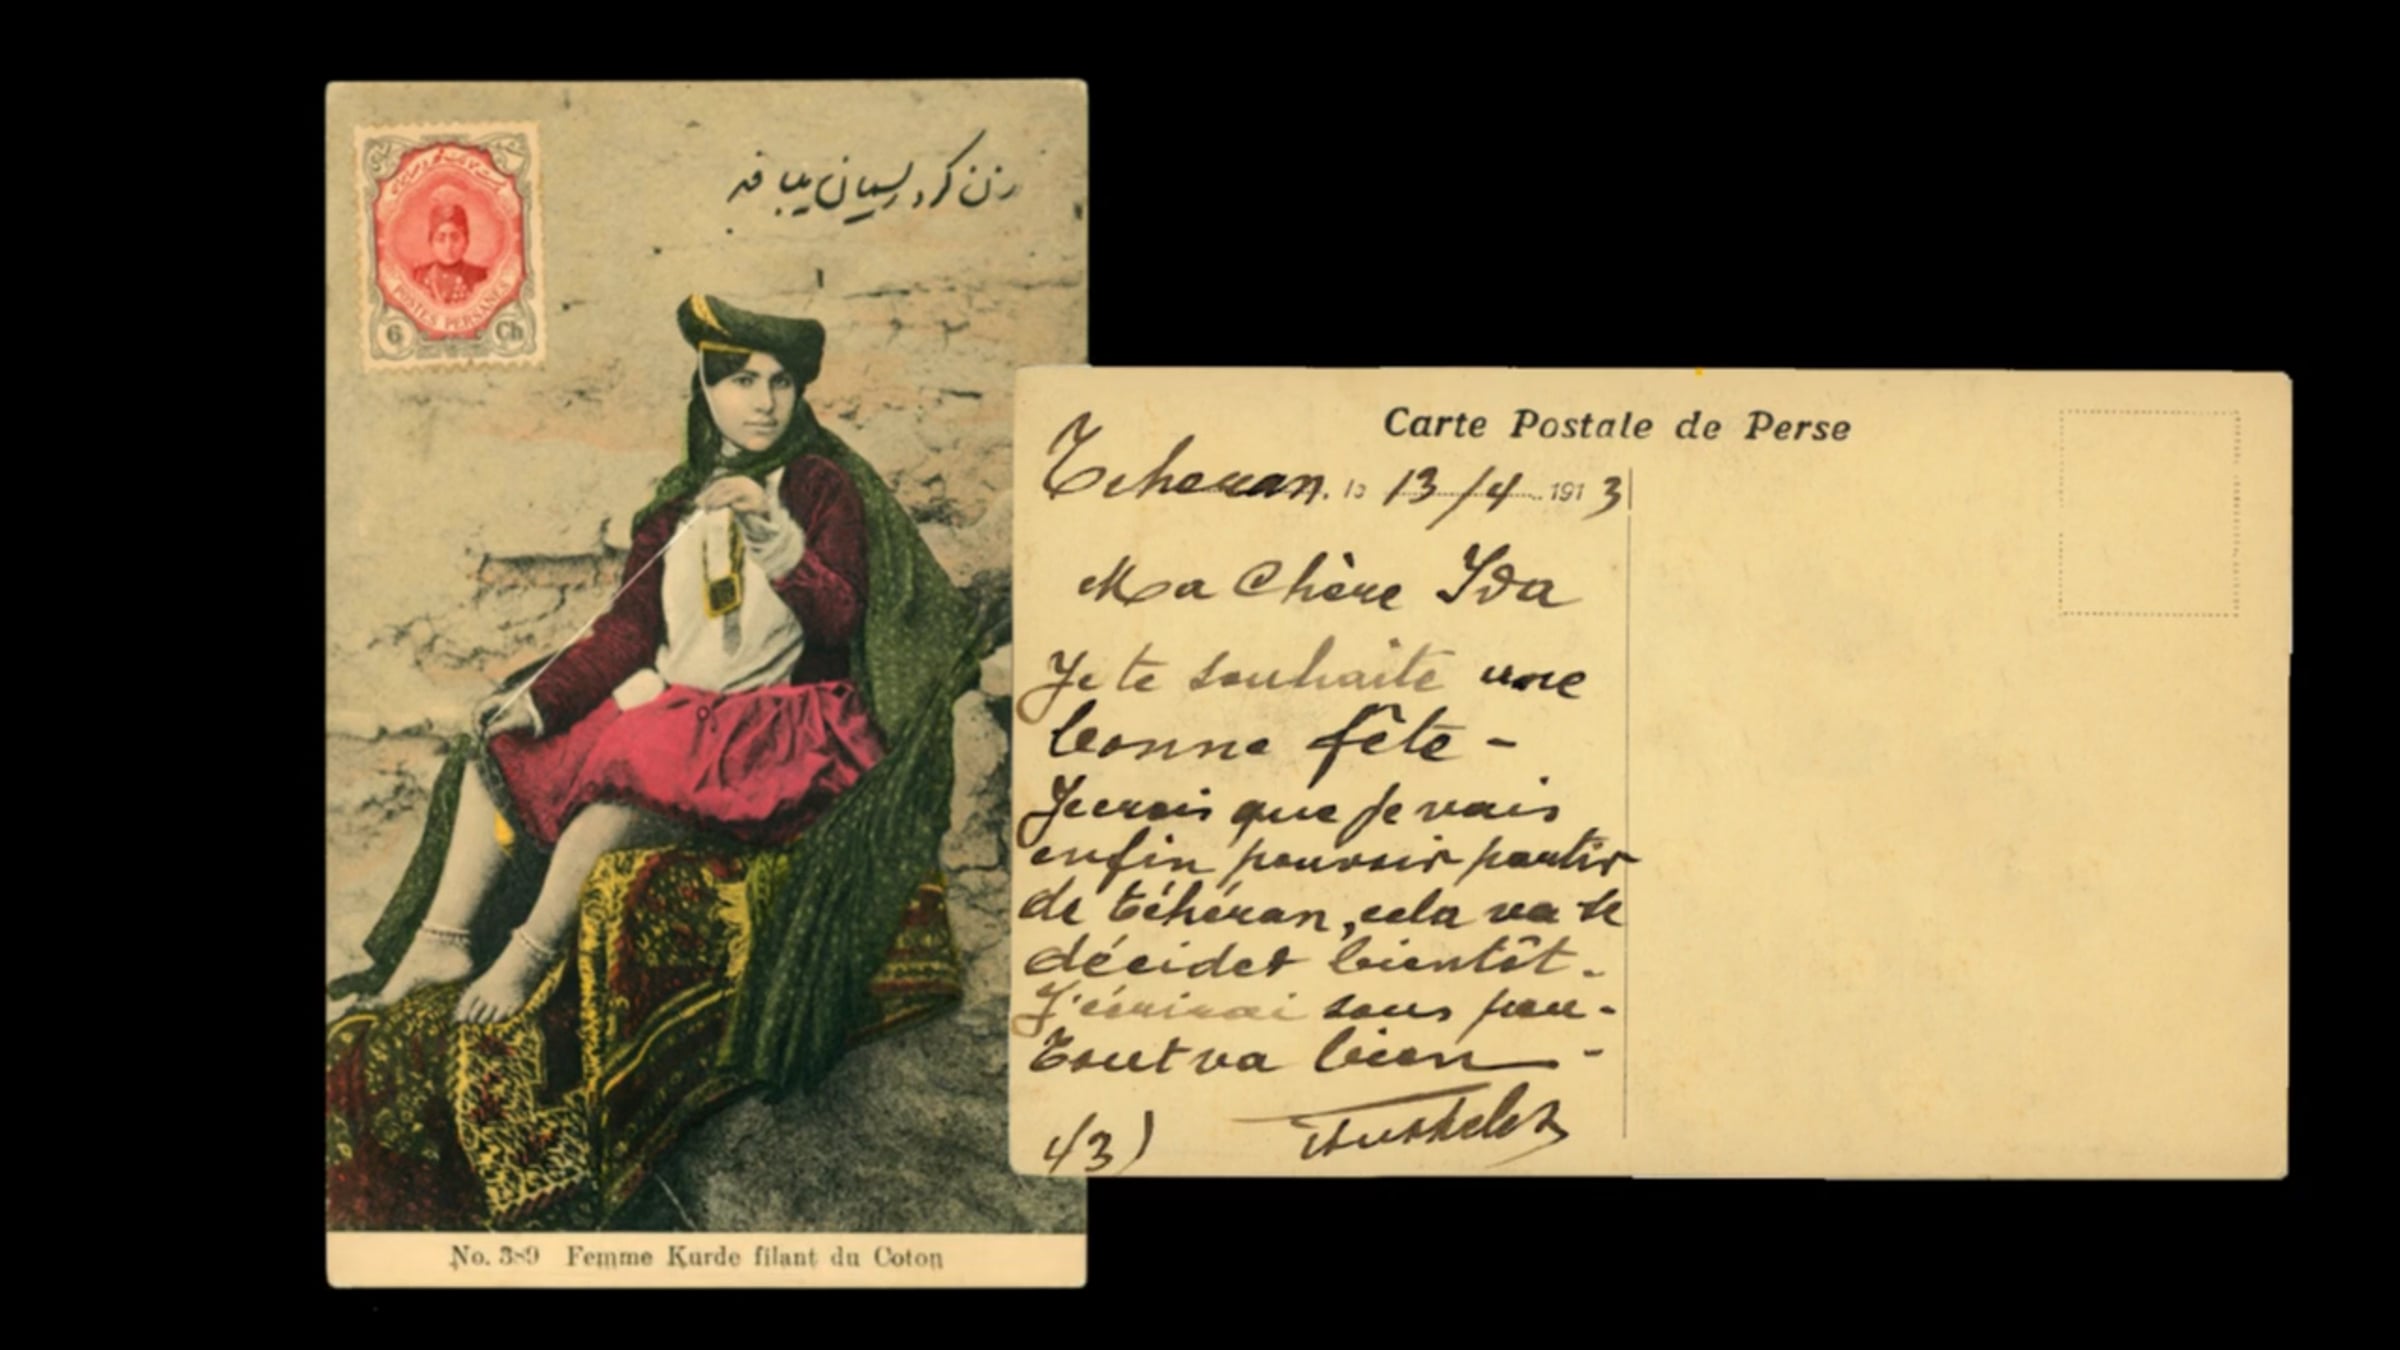 زن کرد ریسمان میبافد
POSTES PERSANES
6 Ch
No. 389 Femme Kurde filant du Coton
Carte Postale de Perse
Teheran. le 13/4 1913
Ma Chère Ida
Je te souhaite une
bonne fête -
Je crois que je vais
enfin pouvoir partir
de téhéran, cela va se
décider bientôt.
J'écrirai sous peu.
Tout va bien -
43)